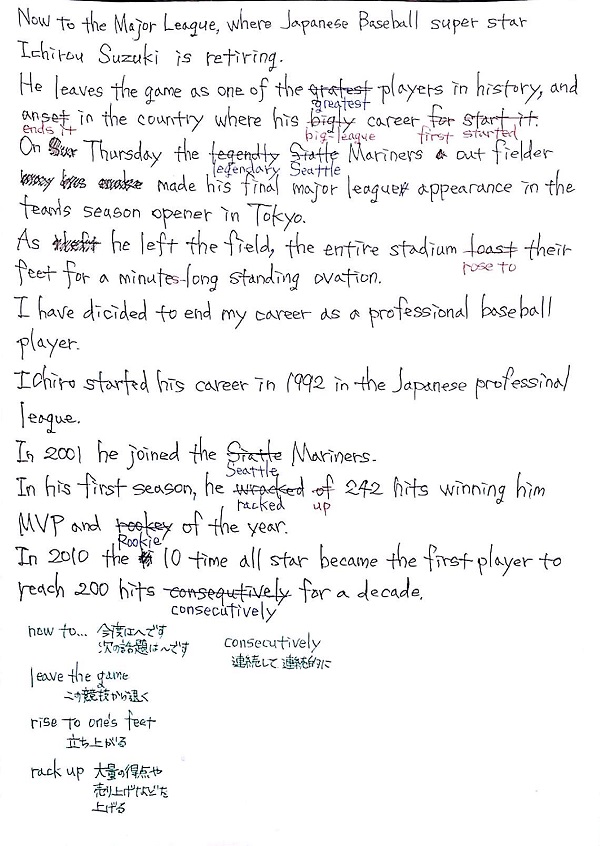 Now to the Major League, where Japanese Baseball super star
Ichirou Suzuki is retiring.
He leaves the game as one of the gratest players in history, and
greatest
anset in the country where his bigty career for start it.
ends it big-league first started
On Thursday the legendty Siatle Mariners out fielder
legendary Seattle
made his final major league appearance in the
teams season opener in Tokyo.
As he left the field, the entire stadium toast their
rose to
feet for a minutes-long standing ovation.
I have dicided to end my career as a professional baseball
player.
Ichiro started his career in 1992 in the Japanese professinal
league.
In 2001 he joined the Siatle Mariners.
Seattle
In his first season, he wracked of 242 hits winning him
racked up
MVP and rookey of the year.
Rookie
In 2010 the 10 time all star became the first player to
reach 200 hits consequtively for a decade.
consecutively
now to... 今度は〜です
次の話題は〜です
consecutively
連続して 連続的に
leave the game
この競技から退く
rise to one's feet
立ち上がる
rack up 大量の得点や
売り上げなどを
上げる